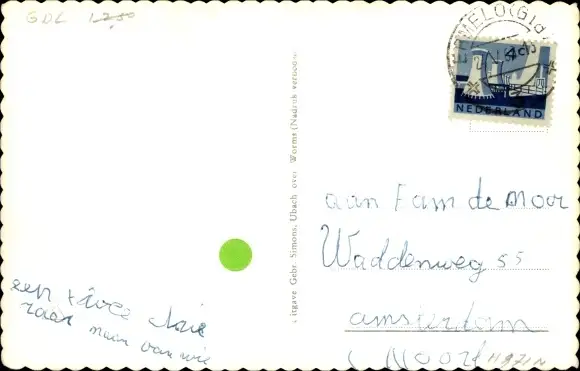 GDL 1250
ERMELO (Gld)
4c
NEDERLAND
Uitgave Gebr. Simons, Ubach over Worms (Nadruk verboden)
aan Fam de Moor
Waddenweg 55
amsterdam
Noord
een twee drie
raar maar van wie